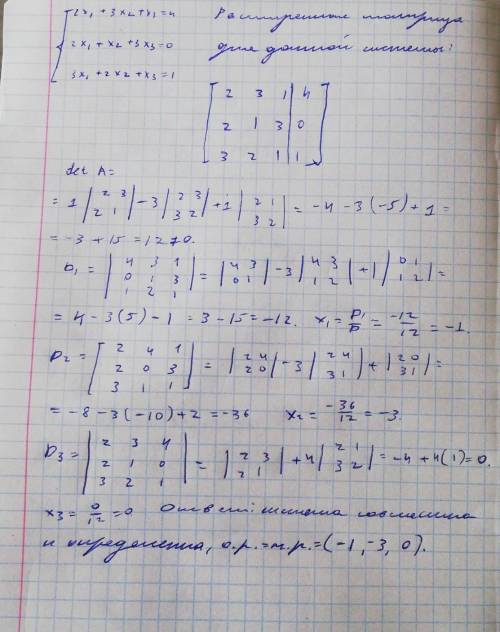 2x₁ + 3x₂ + x₃ = 4 Расширенная матрица
2x₁ + x₂ + 3x₃ = 0 для данной системы:
3x₁ + 2x₂ + x₃ = 1
2 3 1 | 4
2 1 3 | 0
3 2 1 | 1
det A =
= 1 |2 3; 2 1| - 3 |2 3; 3 2| + 1 |2 1; 3 2| = -4 - 3(-5) + 1 =
= -3 + 15 = 12 ≠ 0.
D₁ = |4 3 1; 0 1 3; 1 2 1| = |4 3; 0 1| - 3 |4 3; 1 2| + 1 |0 1; 1 2| =
= 4 - 3(5) - 1 = 3 - 15 = -12. x₁ = D₁/D = -12/12 = -1.
D₂ = |2 4 1; 2 0 3; 3 1 1| = |2 4; 2 0| - 3 |2 4; 3 1| + |2 0; 3 1| =
= -8 - 3(-10) + 2 = -36 x₂ = -36/12 = -3.
D₃ = |2 3 4; 2 1 0; 3 2 1| = |2 3; 2 1| + 4 |2 1; 3 2| = -4 + 4(1) = 0.
x₃ = 0/12 = 0 Ответ: система совместна
и определенна, о.р. = ч.р. = (-1, -3, 0).